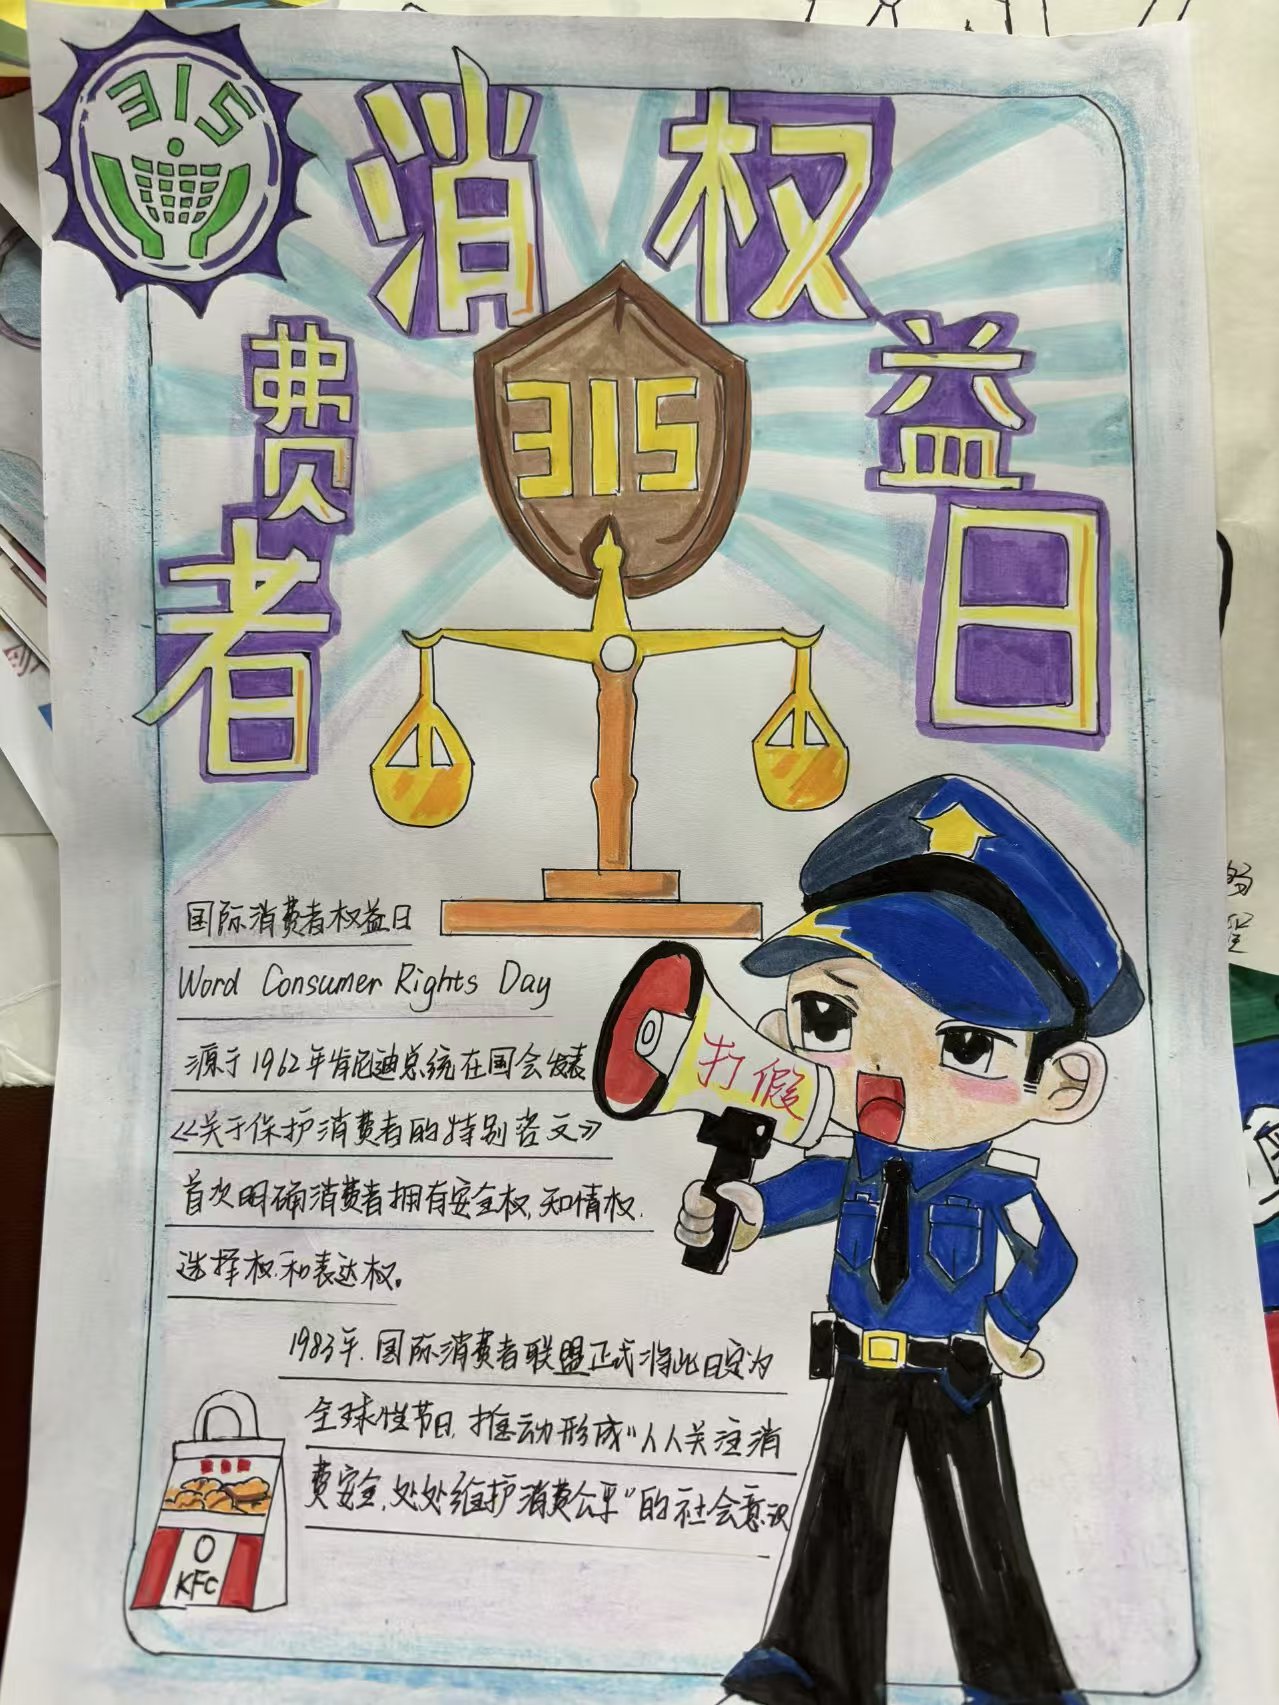 315
消费者权益日
315
国际消费者权益日
Word Consumer Rights Day
源于1962年肯尼迪总统在国会发表
《关于保护消费者的特别咨文》
首次明确消费者拥有安全权,知情权.
选择权.和表达权。
打假
1983年.国际消费者联盟正式将此日定为
全球性节日,推动形成“人人关注消
费安全,处处维护消费公平”的社会意识
KFC